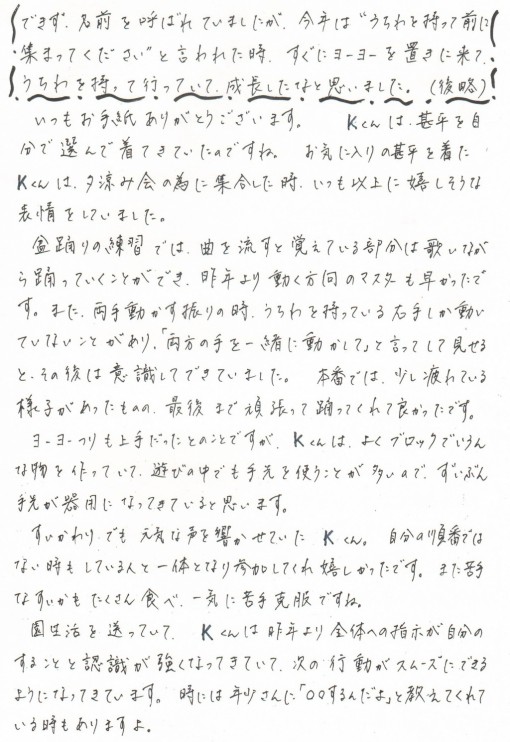 できず、名前を呼ばれていましたが、今年は"うちわを持って前に
集まってください"と言われた時、すぐにヨーヨーを置きに来て、
うちわを持って行っていて、成長したなと思いました。(後略)
いつもお手紙ありがとうございます。 Kくんは、甚平を自
分で選んで着てきていたのですね。 お気に入りの甚平を着た
Kくんは、夕涼み会の為に集合した時、いつも以上に嬉しそうな
表情をしていました。
盆踊りの練習では、曲を流すと覚えている部分は歌いなが
ら踊っていくことができ、昨年より動く方向のマスターも早かったで
す。また、両手動かす振りの時、うちわを持っている右手しか動い
ていないことがあり、「両方の手を一緒に動かして」と言ってして見せる
と、その後は意識してできていました。 本番では、少し疲れている
様子があったものの、最後まで頑張って踊ってくれて良かったです。
ヨーヨーつりも上手だったとのことですが、Kくんは、よくブロックでいろん
な物を作っていて、遊びの中でも手先を使うことが多いので、ずいぶん
手先が器用になってきていると思います。
すいかわりでも元気な声を響かせていた Kくん。 自分の順番では
ない時もしている人と一体となり参加してくれ嬉しかったです。また苦手
なすいかもたくさん食べ、一気に苦手克服ですね。
園生活を送っていて、 Kくんは昨年より全体への指示が自分の
することと認識が強くなってきていて、次の行動がスムーズにできる
ようになってきています。 時には年少さんに「○○するんだよ」と教えてくれて
いる時もありますよ。